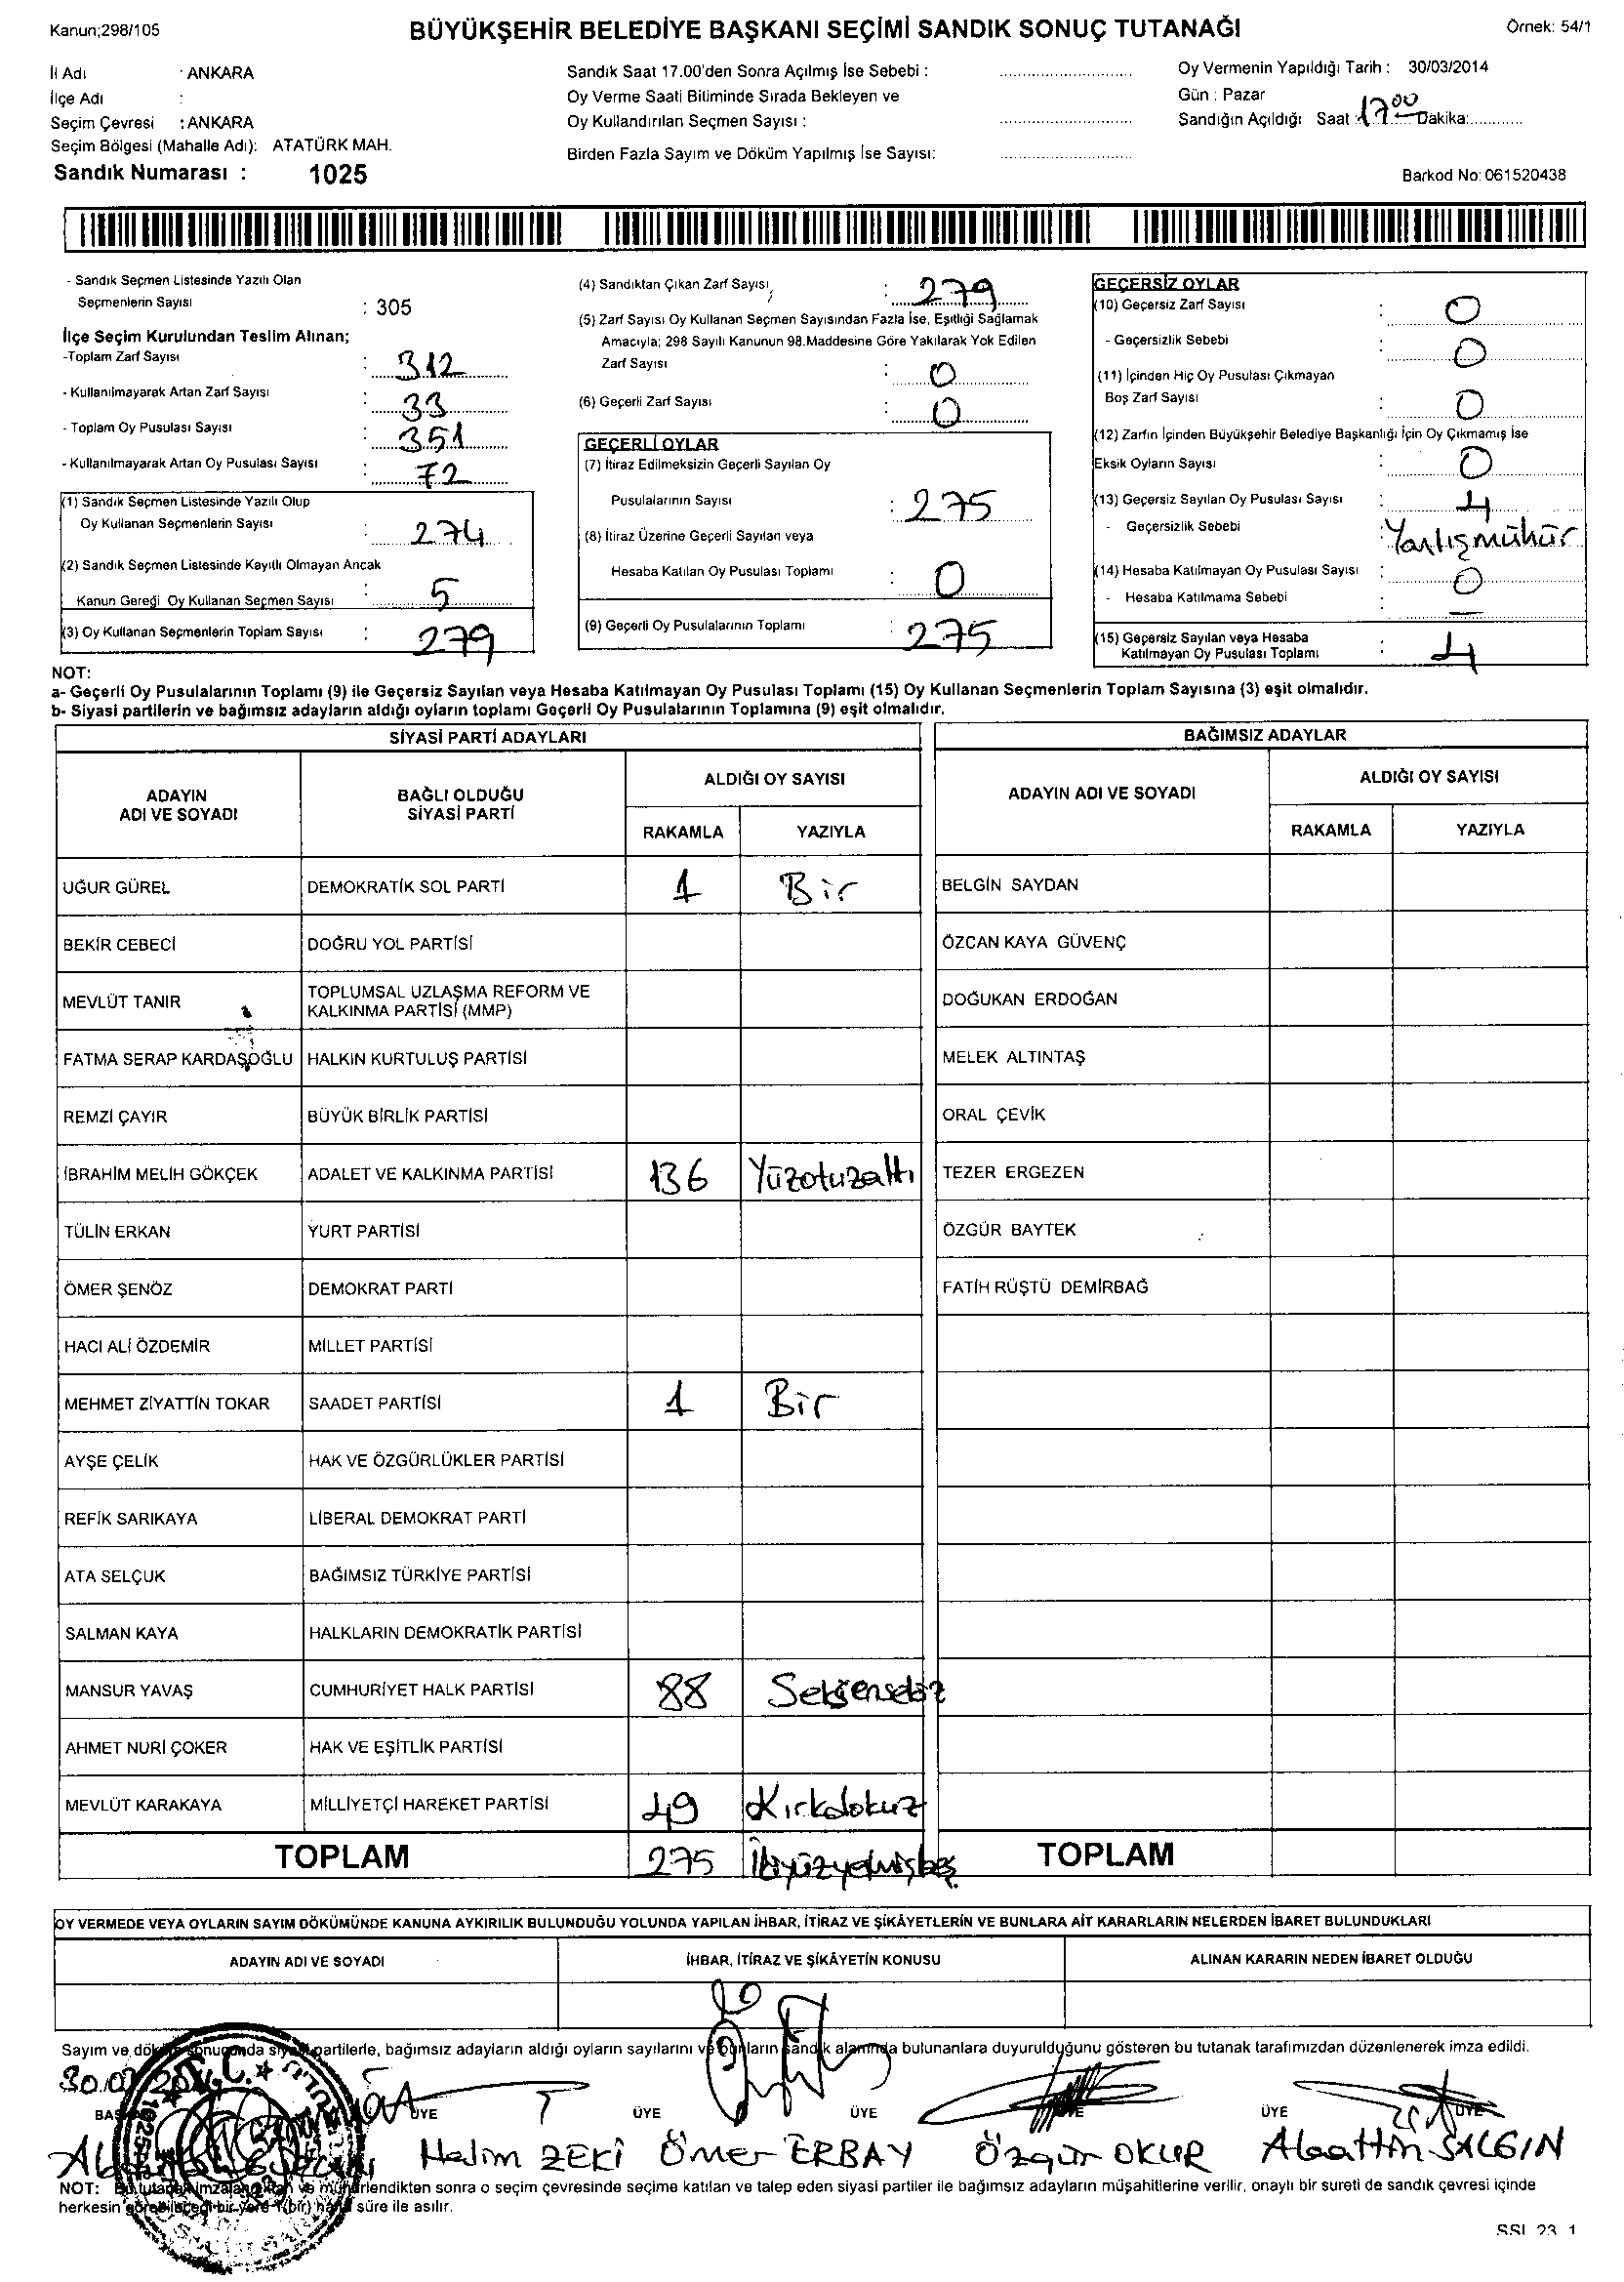 Kanun;298/105
BÜYÜKŞEHİR BELEDİYE BAŞKANI SEÇİMİ SANDIK SONUÇ TUTANAĞI
Örnek: 54/1
İl Adı : ANKARA
İlçe Adı :
Seçim Çevresi : ANKARA
Seçim Bölgesi (Mahalle Adı): ATATÜRK MAH.
Sandık Numarası : 1025
Sandık Saat 17.00'den Sonra Açılmış İse Sebebi :
Oy Verme Saati Bitiminde Sırada Bekleyen ve
Oy Kullandırılan Seçmen Sayısı :
Birden Fazla Sayım ve Döküm Yapılmış İse Sayısı:
Oy Vermenin Yapıldığı Tarih : 30/03/2014
Gün : Pazar
Sandığın Açıldığı Saat : 17 00 Dakika:
Barkod No: 061520438
- Sandık Seçmen Listesinde Yazılı Olan
Seçmenlerin Sayısı : 305
İlçe Seçim Kurulundan Teslim Alınan;
-Toplam Zarf Sayısı : 312
- Kullanılmayarak Artan Zarf Sayısı : 33
- Toplam Oy Pusulası Sayısı : 351
- Kullanılmayarak Artan Oy Pusulası Sayısı : 72
(1) Sandık Seçmen Listesinde Yazılı Olup
Oy Kullanan Seçmenlerin Sayısı : 274
(2) Sandık Seçmen Listesinde Kayıtlı Olmayan Ancak
Kanun Gereği Oy Kullanan Seçmen Sayısı : 5
(3) Oy Kullanan Seçmenlerin Toplam Sayısı : 279
(4) Sandıktan Çıkan Zarf Sayısı : 279
(5) Zarf Sayısı Oy Kullanan Seçmen Sayısından Fazla İse, Eşitliği Sağlamak
Amacıyla; 298 Sayılı Kanunun 98.Maddesine Göre Yakılarak Yok Edilen
Zarf Sayısı : 0
(6) Geçerli Zarf Sayısı : 0
GEÇERLİ OYLAR
(7) İtiraz Edilmeksizin Geçerli Sayılan Oy
Pusulalarının Sayısı : 275
(8) İtiraz Üzerine Geçerli Sayılan veya
Hesaba Katılan Oy Pusulası Toplamı : 0
(9) Geçerli Oy Pusulalarının Toplamı : 275
GEÇERSİZ OYLAR
(10) Geçersiz Zarf Sayısı : 0
- Geçersizlik Sebebi : 0
(11) İçinden Hiç Oy Pusulası Çıkmayan
Boş Zarf Sayısı : 0
(12) Zarfın İçinden Büyükşehir Belediye Başkanlığı İçin Oy Çıkmamış İse
Eksik Oyların Sayısı : 0
(13) Geçersiz Sayılan Oy Pusulası Sayısı : 4
- Geçersizlik Sebebi : Yanlış mühür
(14) Hesaba Katılmayan Oy Pusulası Sayısı : 0
- Hesaba Katılmama Sebebi : —
(15) Geçersiz Sayılan veya Hesaba
Katılmayan Oy Pusulası Toplamı : 4
NOT:
a- Geçerli Oy Pusulalarının Toplamı (9) ile Geçersiz Sayılan veya Hesaba Katılmayan Oy Pusulası Toplamı (15) Oy Kullanan Seçmenlerin Toplam Sayısına (3) eşit olmalıdır.
b- Siyasi partilerin ve bağımsız adayların aldığı oyların toplamı Geçerli Oy Pusulalarının Toplamına (9) eşit olmalıdır.
SİYASİ PARTİ ADAYLARI
ADAYIN ADI VE SOYADI
BAĞLI OLDUĞU SİYASİ PARTİ
ALDIĞI OY SAYISI
RAKAMLA YAZIYLA
UĞUR GÜREL DEMOKRATİK SOL PARTİ 1 Bir
BEKİR CEBECİ DOĞRU YOL PARTİSİ
MEVLÜT TANIR TOPLUMSAL UZLAŞMA REFORM VE
KALKINMA PARTİSİ (MMP)
FATMA SERAP KARDAŞOĞLU HALKIN KURTULUŞ PARTİSİ
REMZİ ÇAYIR BÜYÜK BİRLİK PARTİSİ
İBRAHİM MELİH GÖKÇEK ADALET VE KALKINMA PARTİSİ 136 Yüzotuzaltı
TÜLİN ERKAN YURT PARTİSİ
ÖMER ŞENÖZ DEMOKRAT PARTİ
HACI ALİ ÖZDEMİR MİLLET PARTİSİ
MEHMET ZİYATTİN TOKAR SAADET PARTİSİ 1 Bir
AYŞE ÇELİK HAK VE ÖZGÜRLÜKLER PARTİSİ
REFİK SARIKAYA LİBERAL DEMOKRAT PARTİ
ATA SELÇUK BAĞIMSIZ TÜRKİYE PARTİSİ
SALMAN KAYA HALKLARIN DEMOKRATİK PARTİSİ
MANSUR YAVAŞ CUMHURİYET HALK PARTİSİ 88 Seksensekiz
AHMET NURİ ÇOKER HAK VE EŞİTLİK PARTİSİ
MEVLÜT KARAKAYA MİLLİYETÇİ HAREKET PARTİSİ 49 Kırkdokuz
TOPLAM 275 İkiyüzyetmişbeş
BAĞIMSIZ ADAYLAR
ADAYIN ADI VE SOYADI
ALDIĞI OY SAYISI
RAKAMLA YAZIYLA
BELGİN SAYDAN
ÖZCAN KAYA GÜVENÇ
DOĞUKAN ERDOĞAN
MELEK ALTINTAŞ
ORAL ÇEVİK
TEZER ERGEZEN
ÖZGÜR BAYTEK
FATİH RÜŞTÜ DEMİRBAĞ
TOPLAM
OY VERMEDE VEYA OYLARIN SAYIM DÖKÜMÜNDE KANUNA AYKIRILIK BULUNDUĞU YOLUNDA YAPILAN İHBAR, İTİRAZ VE ŞİKÂYETLERİN VE BUNLARA AİT KARARLARIN NELERDEN İBARET BULUNDUKLARI
ADAYIN ADI VE SOYADI
İHBAR, İTİRAZ VE ŞİKÂYETİN KONUSU
ALINAN KARARIN NEDEN İBARET OLDUĞU
Sayım ve döküm sonucunda siyasi partilerle, bağımsız adayların aldığı oyların sayılarını ve bunların sandık alanında bulunanlara duyurulduğunu gösteren bu tutanak tarafımızdan düzenlenerek imza edildi.
T.C.
ÜYE ÜYE ÜYE ÜYE ÜYE
Halim ZEKİ Ömer ERBAY Özgür OKUR Alaattin SALGIN
NOT: Bu tutanak imzalandıktan ve mühürlendikten sonra o seçim çevresinde seçime katılan ve talep eden siyasi partiler ile bağımsız adayların müşahitlerine verilir, onaylı bir sureti de sandık çevresi içinde
herkesin görebileceği bir yere 1 (bir) hafta süre ile asılır.